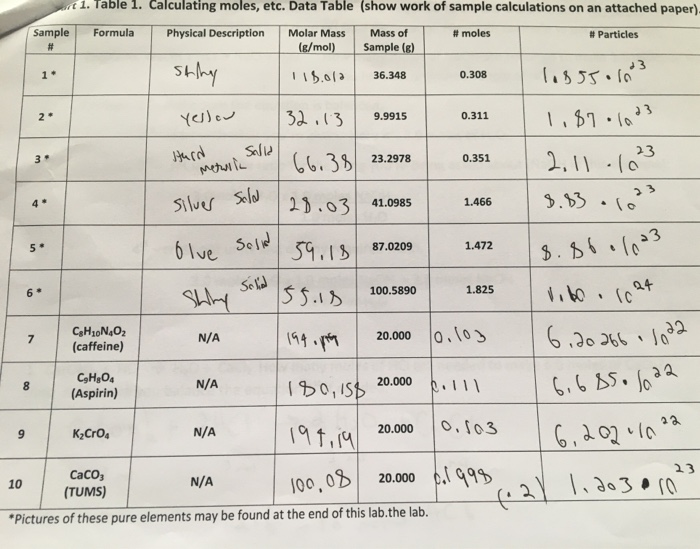 1. Table 1. Calculating moles, etc. Data Table (show work of sample calculations on an attached paper).
Sample # Formula Physical Description Molar Mass (g/mol) Mass of Sample (g) # moles # Particles
1* Shiny 118.012 36.348 0.308 1.855 · 10^23
2* Yellow 32.13 9.9915 0.311 1.87 · 10^23
3* Hard Solid 66.38 23.2978 0.351 2.11 · 10^23
4* Silver Solid 28.03 41.0985 1.466 8.83 · 10^23
5* blue Solid 59.18 87.0209 1.472 8.86 · 10^23
6* Shiny Solid 55.18 100.5890 1.825 1.60 · 10^24
7 C8H10N4O2 (caffeine) N/A 194. 20.000 0.103 6.20266 · 10^22
8 C9H8O4 (Aspirin) N/A 180,158 20.000 0.111 6.685 · 10^22
9 K2CrO4 N/A 194.19 20.000 0.103 6.202 · 10^22
10 CaCO3 (TUMS) N/A 100.08 20.000 0.1998 (.2) 1.203 · 10^23
*Pictures of these pure elements may be found at the end of this lab.the lab.